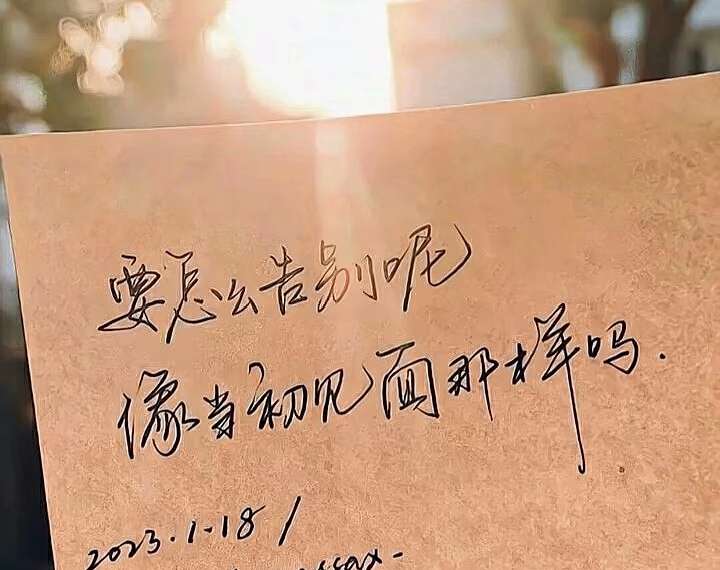 要怎么告别呢
像当初见面那样吗.
2023.1.18/